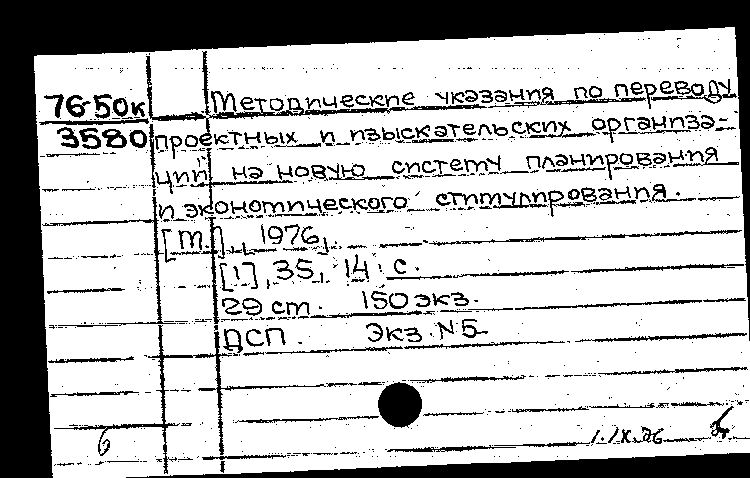 76-50к Методические указания по переводу
3580 проектных и изыскательских организа-
ций на новую систему планирования
и экономического стимулирования.
[М.], 1976,
[1], 35, 14 с.
29 см. 150 экз.
ДСП. Экз. №5
6 1.IX.76